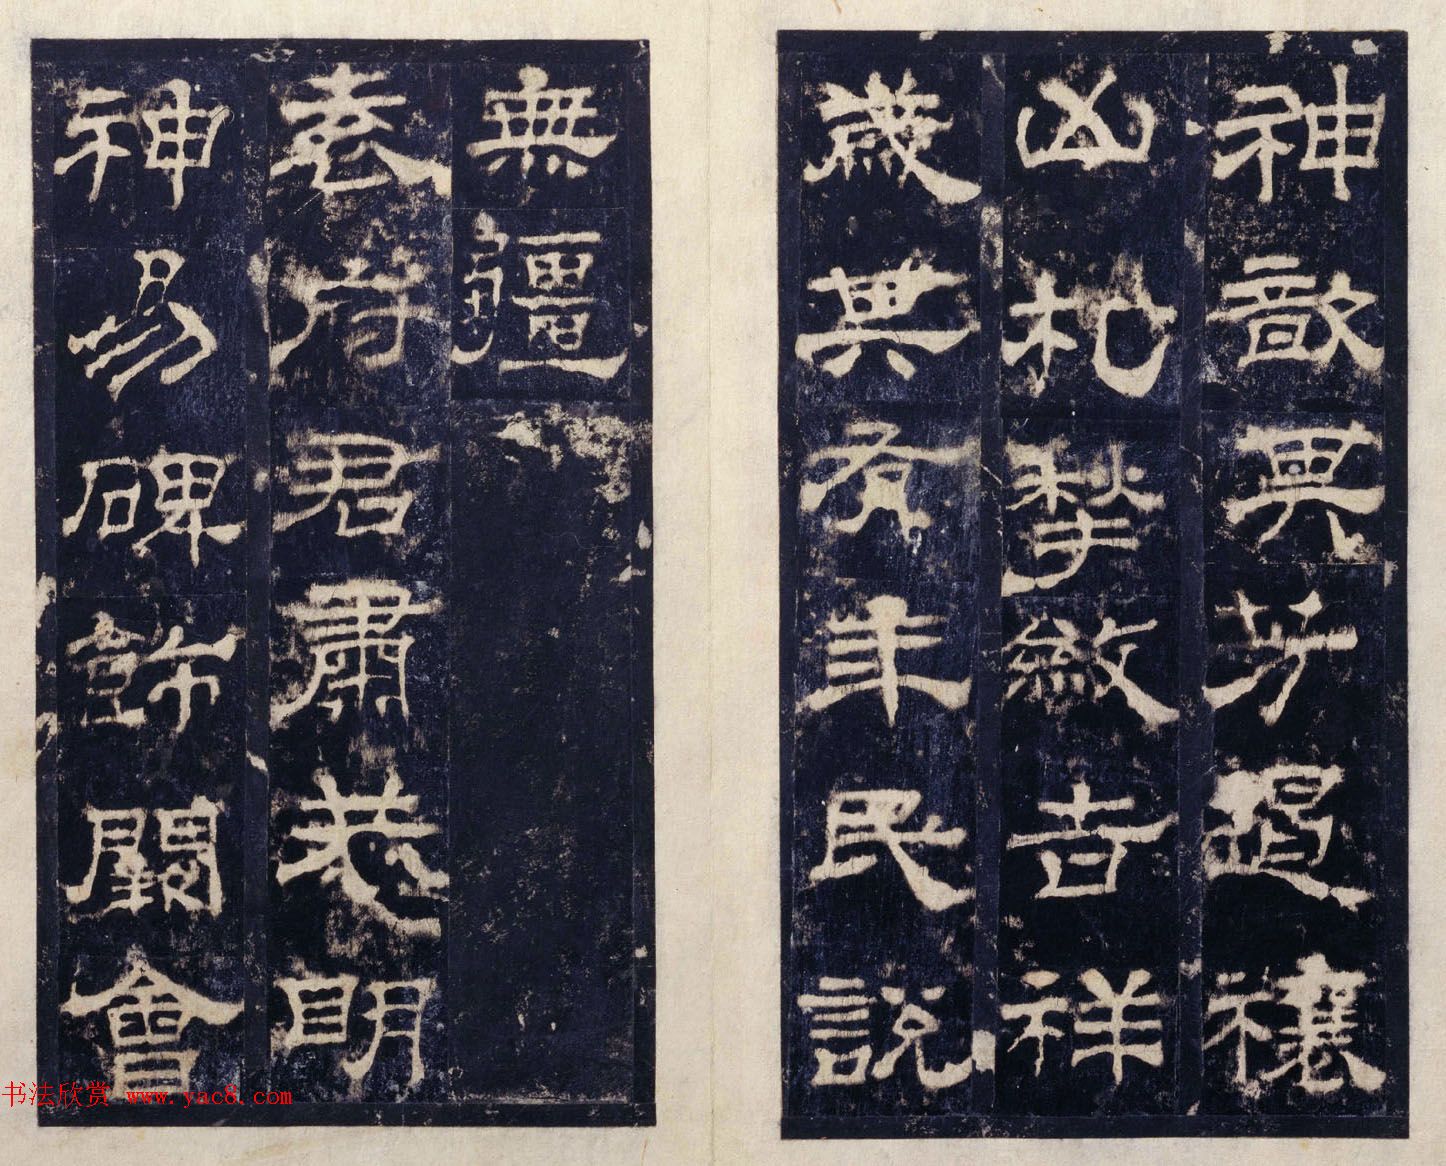 神歆其芳遏禳
凶札揫斂吉祥
歲其有年民說
無疆
袁府君肅恭明
神易碑飾闕會
书法欣赏 www.yac8.com